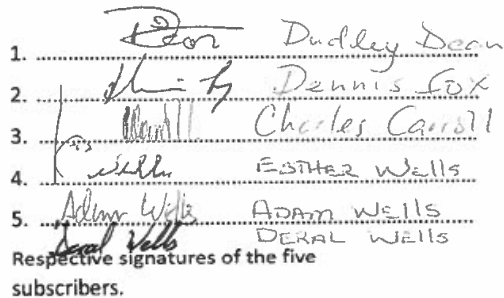 1. Dudley Dean
2. Dennis Fox
3. Charles Carroll
4. ESTHER WEllS
5. Adam Wells ADAM WEllS
Deral Wells DERAL WEllS
Respective signatures of the five
subscribers.